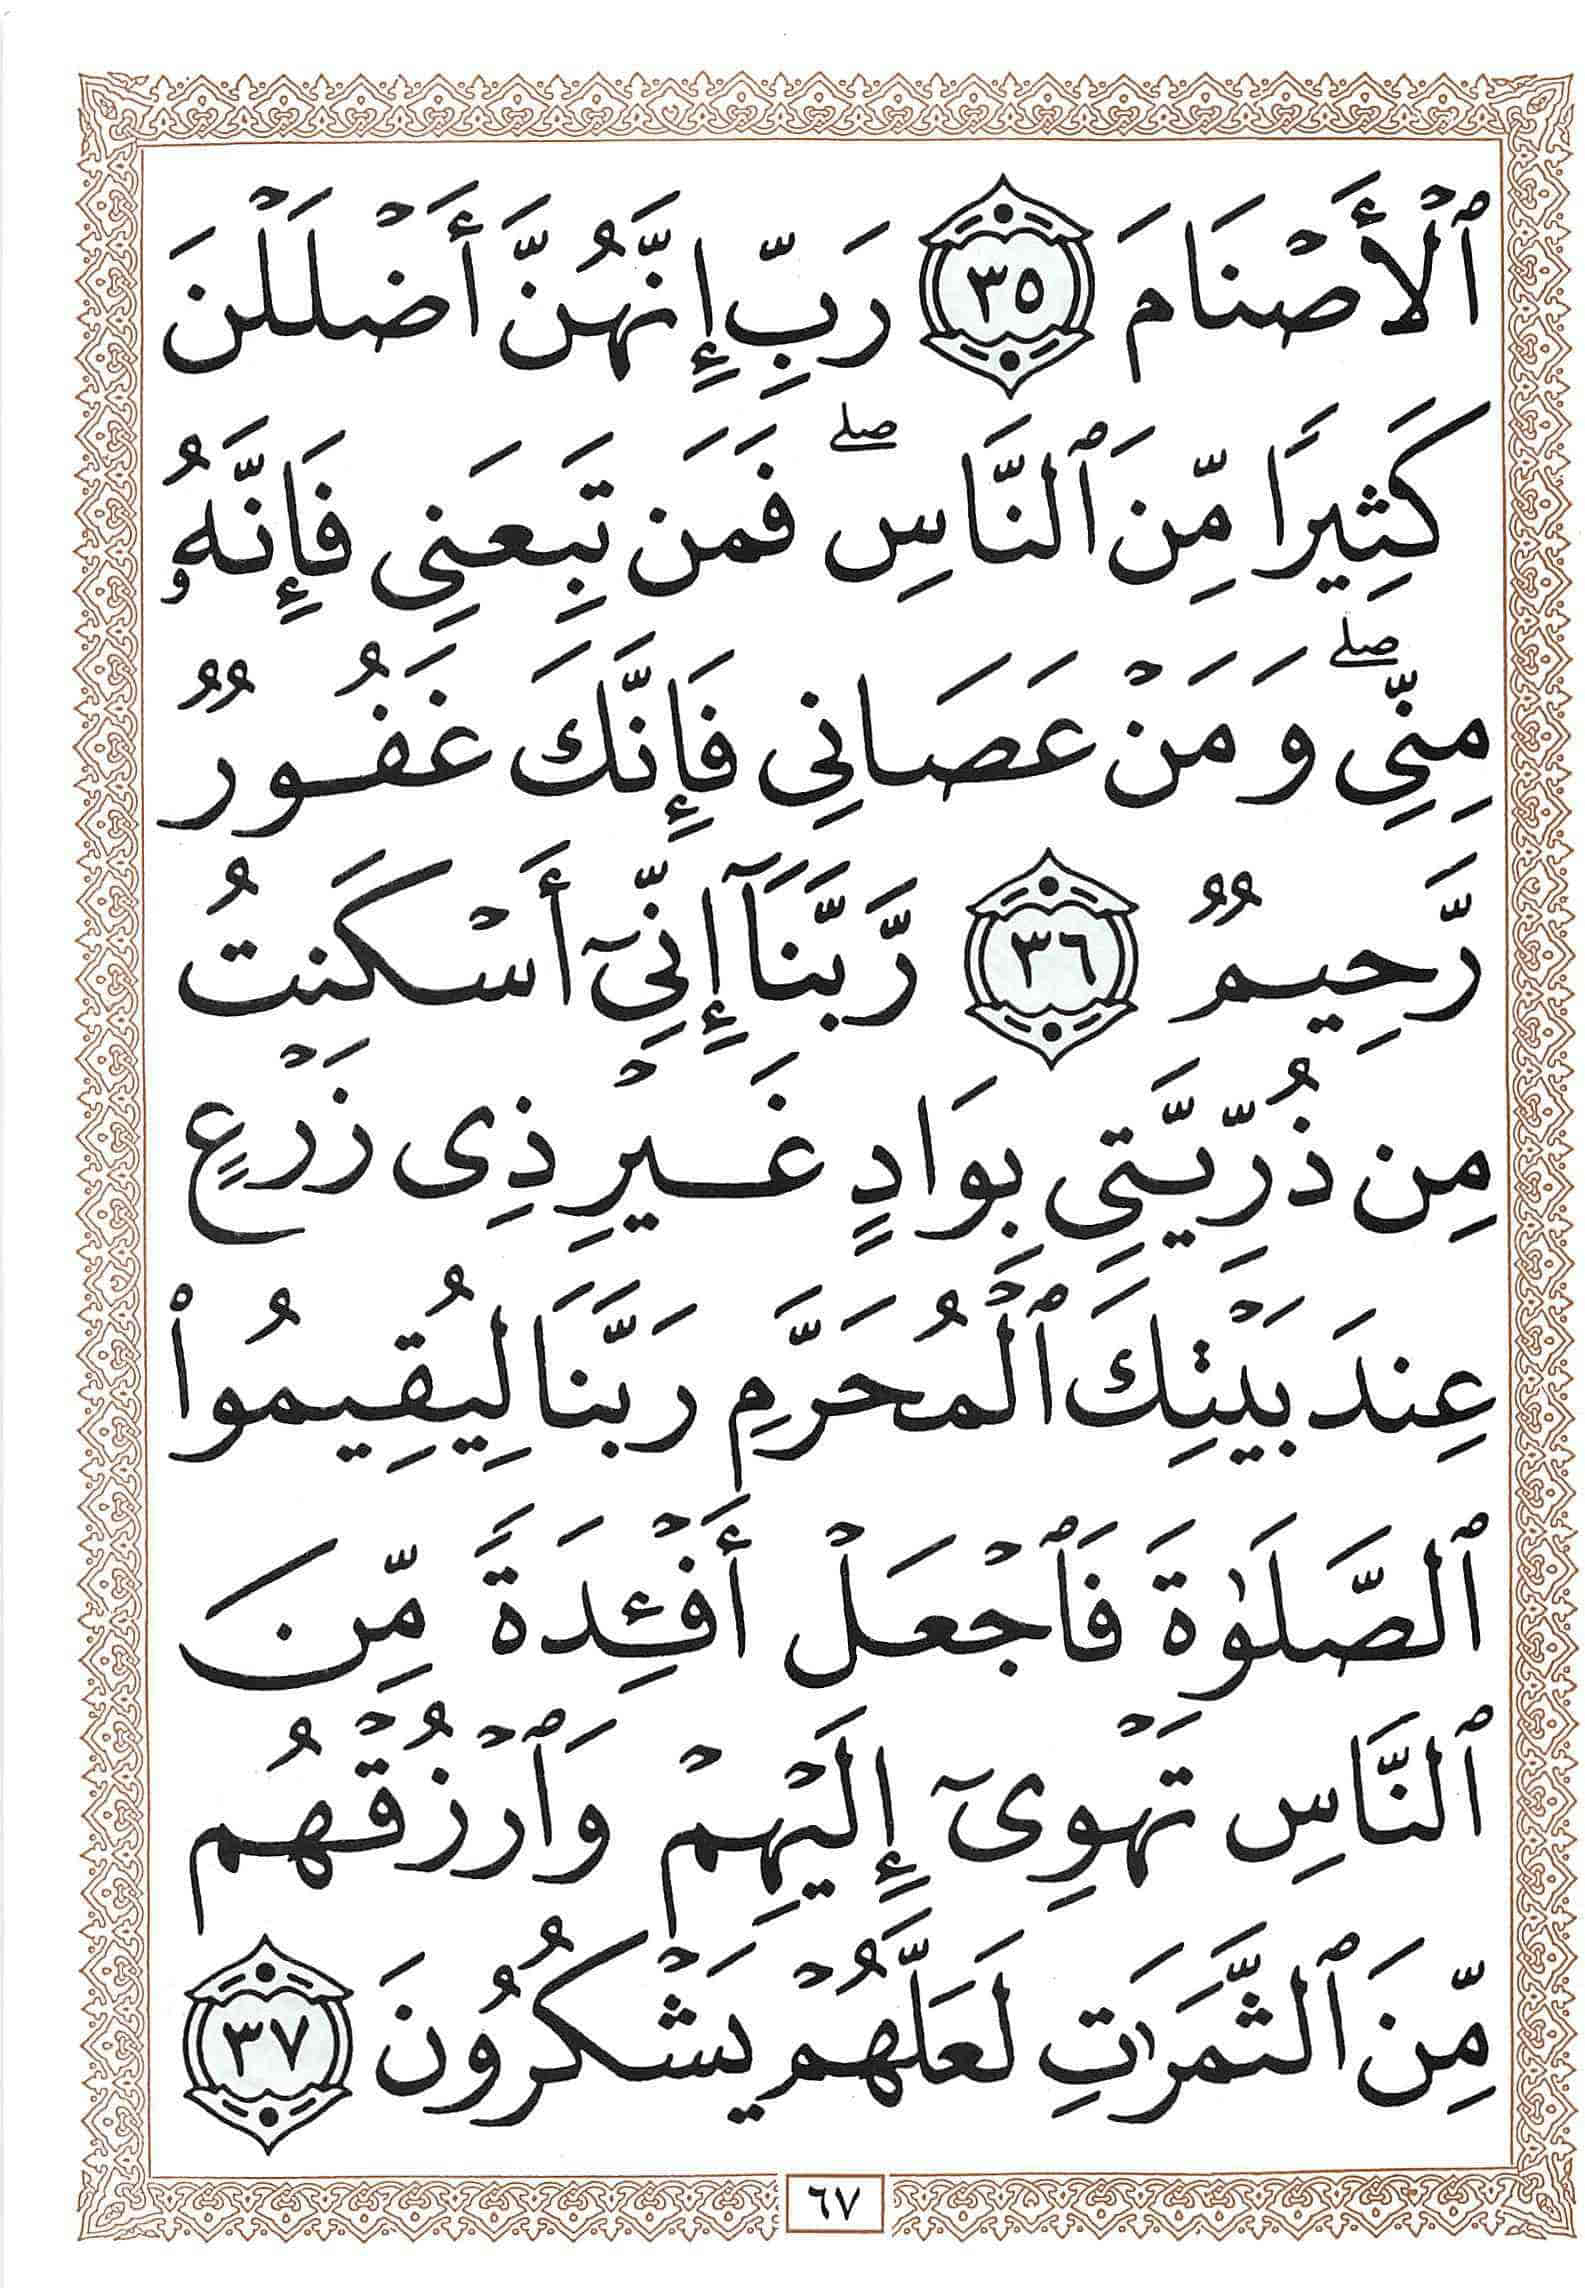 ٱلْأَصْنَامَ ٣٥ رَبِّ إِنَّهُنَّ أَضْلَلْنَ
كَثِيرًا مِّنَ ٱلنَّاسِ ۖ فَمَن تَبِعَنِى فَإِنَّهُۥ
مِنِّى ۖ وَمَنْ عَصَانِى فَإِنَّكَ غَفُورٌ
رَّحِيمٌ ٣٦ رَّبَّنَآ إِنِّىٓ أَسْكَنتُ
مِن ذُرِّيَّتِى بِوَادٍ غَيْرِ ذِى زَرْعٍ
عِندَ بَيْتِكَ ٱلْمُحَرَّمِ رَبَّنَا لِيُقِيمُوا۟
ٱلصَّلَوٰةَ فَٱجْعَلْ أَفْـِٔدَةً مِّنَ
ٱلنَّاسِ تَهْوِىٓ إِلَيْهِمْ وَٱرْزُقْهُم
مِّنَ ٱلثَّمَرَٰتِ لَعَلَّهُمْ يَشْكُرُونَ ٣٧
٦٧